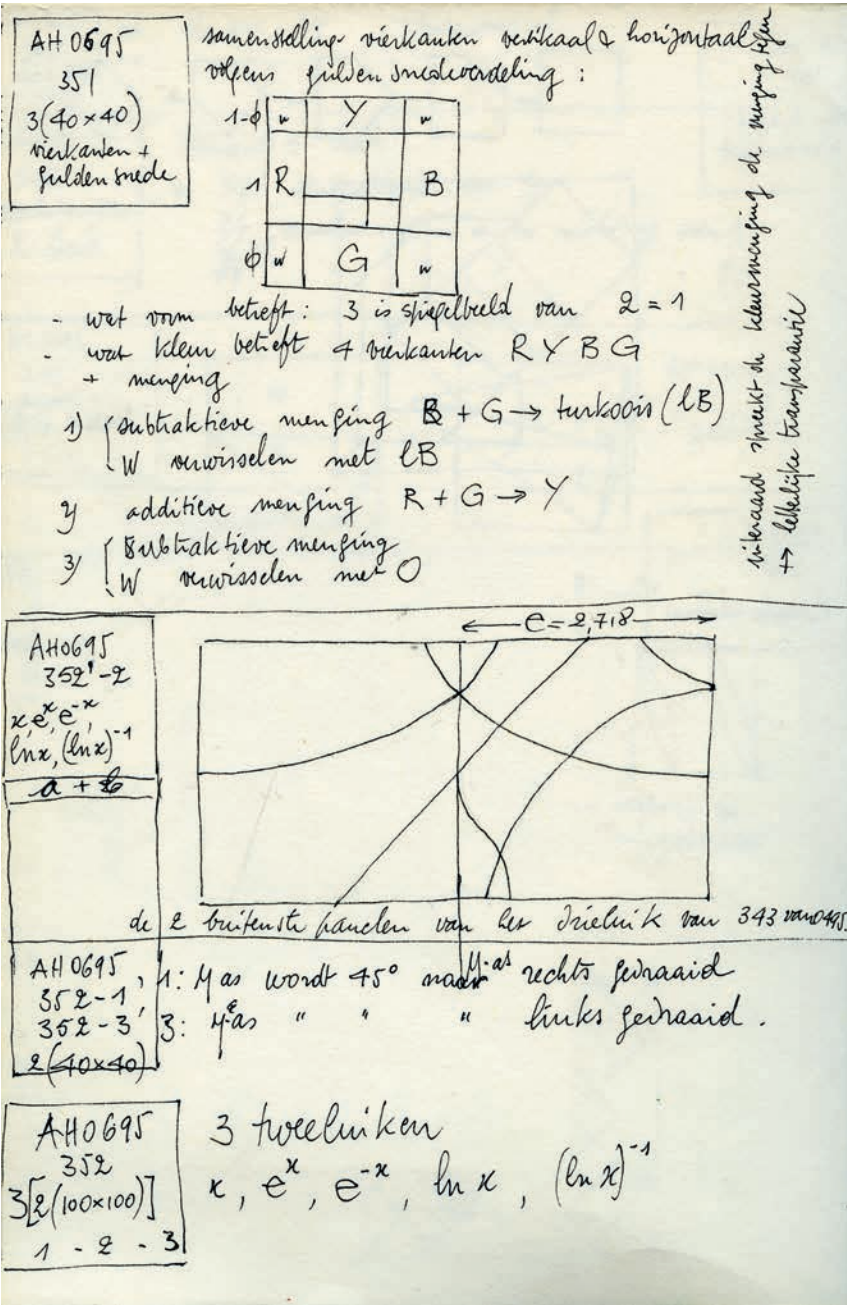 AH 0695
351
3(40×40)
vierkanten +
gulden snede
samenstelling vierkanten vertikaal & horizontaal
volgens gulden snedeverdeling :
1-ϕ w Y w
1 R B
ϕ w G w
- wat vorm betreft : 3 is spiegelbeeld van 2 = 1
- wat kleur betreft 4 vierkanten R Y B G
+ menging
1) subtraktieve menging B + G → turkoois (lB)
W verwisselen met lB
2) additieve menging R + G → Y
3) subtraktieve menging
W verwisselen met O
uiteraard spreekt de kleurmenging de menging tegen
↔ letterlijke transparantie
AH0695
352'-2
x, e^x, e^-x,
ln x, (ln x)^-1
a + b
e = 2,718
de 2 buitenste panelen van het drieluik van 343 van 0495
y-as
AH 0695
352-1,
352-3
2(40×40)
1: y as wordt 45° naar rechts gedraaid
3: y as " " " links gedraaid.
AH0695
352
3[2(100×100)]
1 - 2 - 3
3 tweeluiken
x, e^x, e^-x, ln x, (ln x)^-1